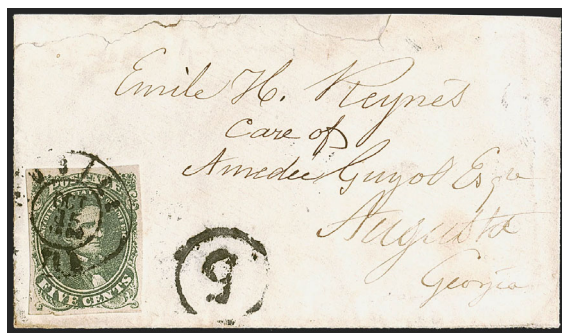 Emile H. Reynès
Care of
Amedée Guyol Esqre
Augusta
Georgia
OCT
15
5
FIVE CENTS